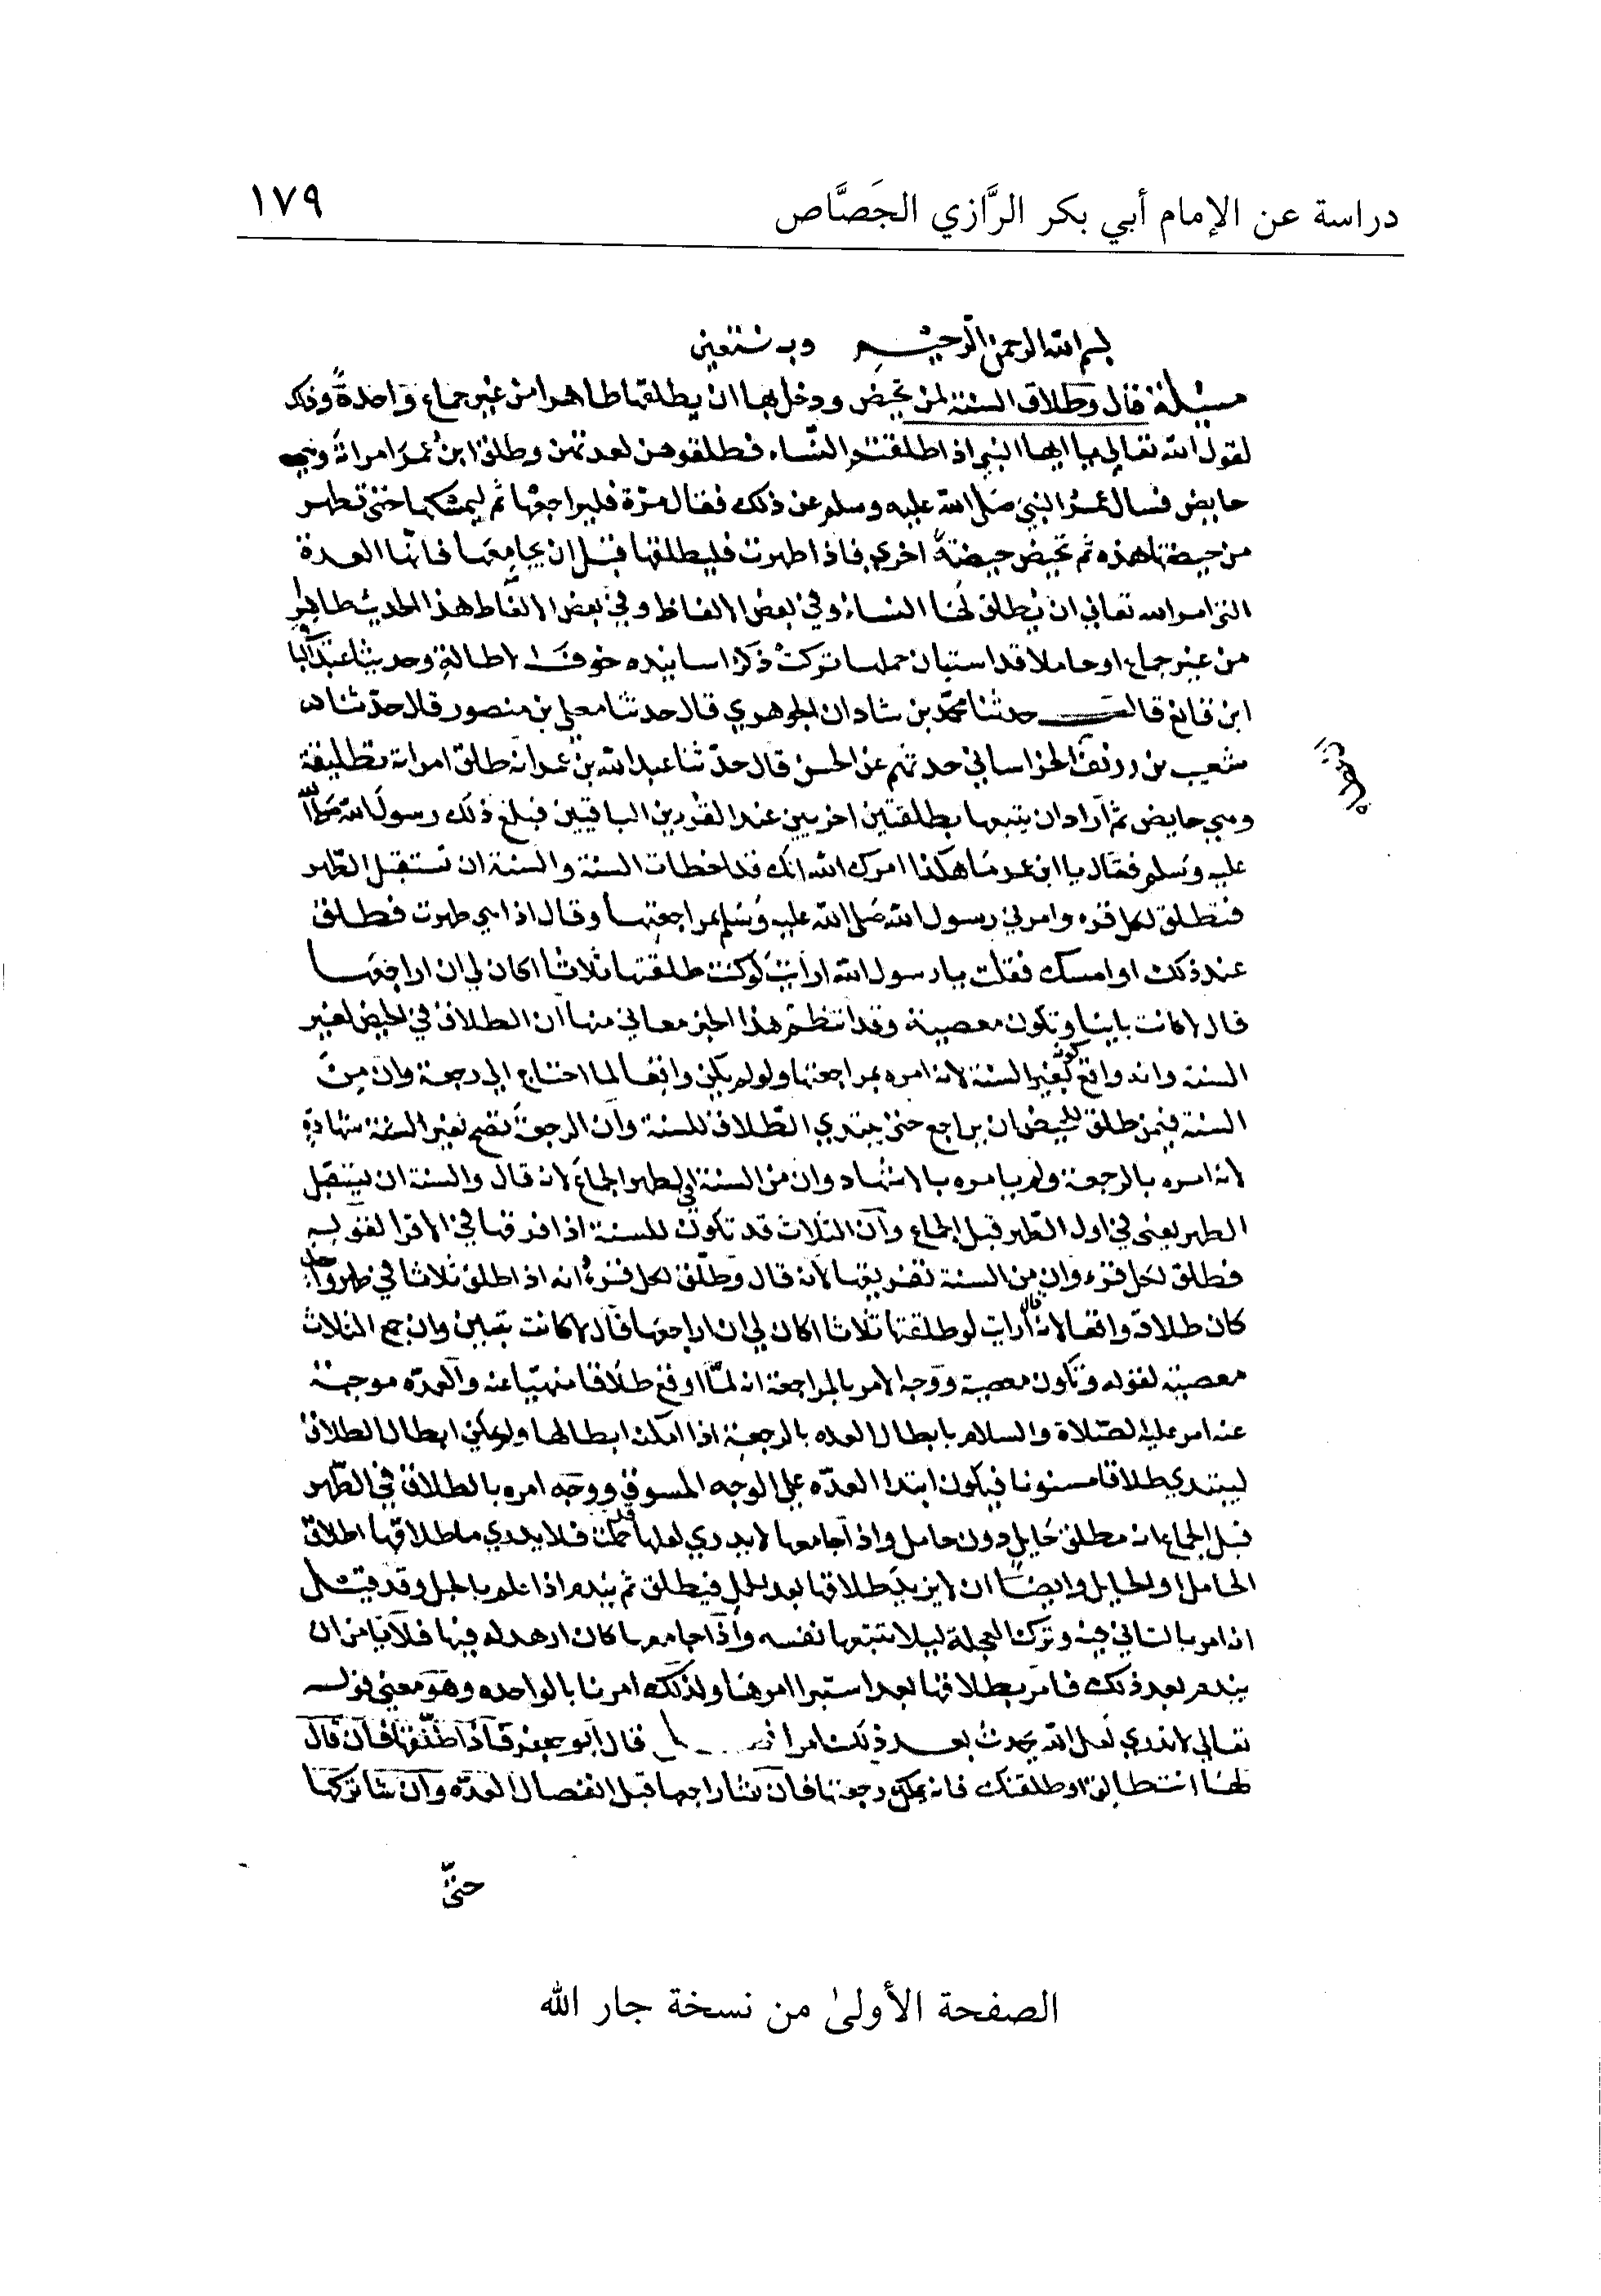 دراسة عن الإمام أبي بكر الرَّازي الجَصَّاص
١٧٩
بسم الله الرحمن الرحيم وبه نستعين
مسئلة قال وطلاق السنة لمن تحيض ودخل بها ان يطلقها طاهرا من غير جماع واحدة وذلك
لقول الله تعالى يا ايها النبي اذا طلقتم النساء فطلقوهن لعدتهن وطلق ابن عمر امراته وهي
حايض فسال عمر النبي صلى الله عليه وسلم عن ذلك فقال مره فليراجعها ثم ليمسكها حتى تطهر
من حيضتها هذه ثم تحيض حيضة اخرى فاذا طهرت فليطلقها قبل ان يجامعها فانها العدة
التي امر الله تعالى ان يطلق لها النساء وفي بعض الالفاظ وفي بعض الالفاظ هذا الحديث طاهرا
من غير جماع او حاملا قد استبان حملها تركت ذكر اسانيده خوف الاطالة وحدثنا عبد الباقي
ابن قانع قال حدثنا محمد بن شاذان الجوهري قال حدثنا معلى بن منصور قال حدثنا
شعيب بن رزيق الخراساني حدثهم عن الحسن قال حدثنا عبد الله بن عمر انه طلق امراته تطليقة
وهي حايض ثم اراد ان يتبعها بطلقتين اخريين عند القرءين الباقيين فبلغ ذلك رسول الله صلى الله
عليه وسلم فقال يا ابن عمر ما هكذا امرك الله انك قد اخطات السنة والسنة ان تستقبل الطهر
فتطلق لكل قرء وامرني رسول الله صلى الله عليه وسلم بمراجعتها وقال اذا هي طهرت فطلق
عند ذلك او امسك فقلت يا رسول الله ارايت لو كنت طلقتها ثلاثا اكان لي ان اراجعها
قال لا كانت باينا وتكون معصية وقد انتظم هذا الخبر معاني منها ان الطلاق في الحيض لغير
السنة وانه واقع كونه لغير السنة لانه امره بمراجعتها ولو لم يكن واقعا لما احتاج الى رجعة وان من
السنة فيمن طلق للحيض ان يراجع حتى يبتدي الطلاق للسنة وان الرجعة تصح بغير شهادة
لانه امره بالرجعة ولم يامره بالاشهاد وان من السنة الطهر الجماع لانه قال والسنة ان يستقبل
الطهر يعني في اول الطهر قبل الجماع وان الثلاث قد تكون للسنة اذا فرقها في الاقرا لقوله
فطلق لكل قرء وان من السنة تفريقها لانه قال وطلق لكل قرء وانه اذا طلق ثلاثا في طهر واحد
كان طلاقه واقعا لانه قال ارايت لو طلقتها ثلاثا اكان لي ان اراجعها قال لا كانت تبين وان جمع الثلاث
معصية لقوله وتكون معصية ووجه الامر بالمراجعة انه لما اوقع طلاقا منهيا عنه والعده موجبة
عنه امر عليه الصلاة والسلام بابطال العده بالرجعة اذا امكن ابطالها ولم يمكن ابطال الطلاق
ليبتدي طلاقا مسنونا فيكون ابتدا العده على الوجه ووجه امره بالطلاق في الطهر
قبل الجماع انه مطلق حايل دون حامل واذا جامعها لا يدري لعلها قد حملت فلا يدري ما طلاقها اطلاق
الحامل او الحايل وايضا ان لا يريد طلاقها بعد الحمل فيطلق ثم يندم اذا علم بالحبل وقد قيل
انه امر بالتاني فيه وترك العجلة ليلا تتبعها نفسه واذا جامعها كان ازهد له فيها فلا يامن ان
يندم بعد ذلك فامر بطلاقها بعد استبرا امرها ولذلك امرنا بالواحده وهو معنى قوله
تعالى لا تدري لعل الله يحدث بعد ذلك امرا قال ابو جعفر فاذا طلقها فان قال
لها انت طالق او طلقتك فانه يملك رجعتها فان شا راجعها قبل انقضا العده وان شا تركها
حتى
الصفحة الأولىٰ من نسخة جار الله